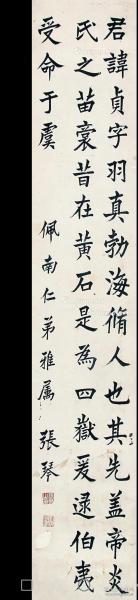 君諱貞字羽真勃海脩人也其先盖帝炎
氏之苗裔昔在黄石是為四嶽爰逮伯夷
受命于虞
佩南仁弟雅属
張琴